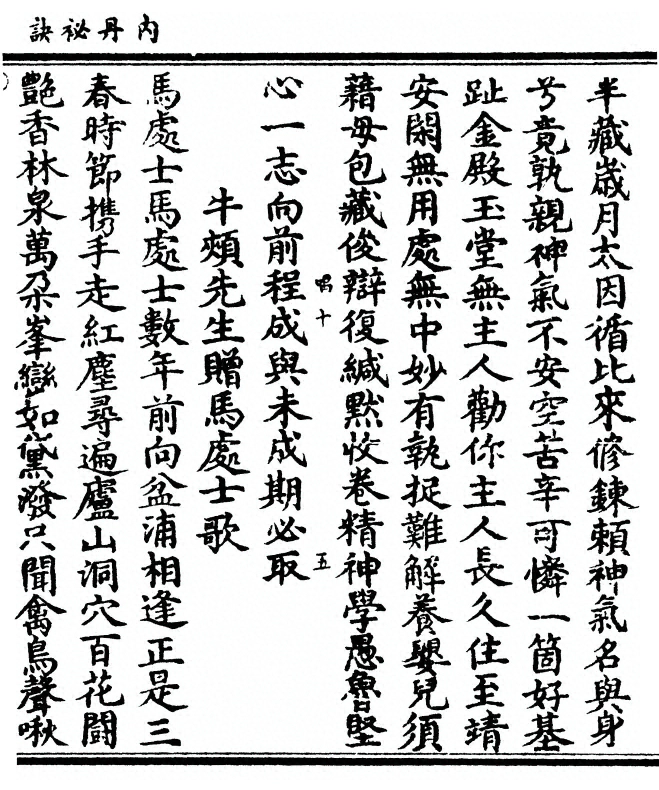 內丹祕訣
半藏歲月太因循比來修鍊賴神氣名與身
兮竟孰親神氣不安空苦辛可憐一箇好基
趾金殿玉堂無主人勸你主人長久住至靖
安閑無用處無中妙有執捉難解養嬰兒須
藉母包藏俊辯復緘默收卷精神學愚魯堅
心一志向前程成與未成期必取
唱十 五
牛頰先生贈馬處士歌
馬處士馬處士數年前向盆浦相逢正是三
春時節携手走紅塵尋遍廬山洞穴百花鬪
艷香林泉萬朶峯巒如黛潑只聞禽鳥聲啾